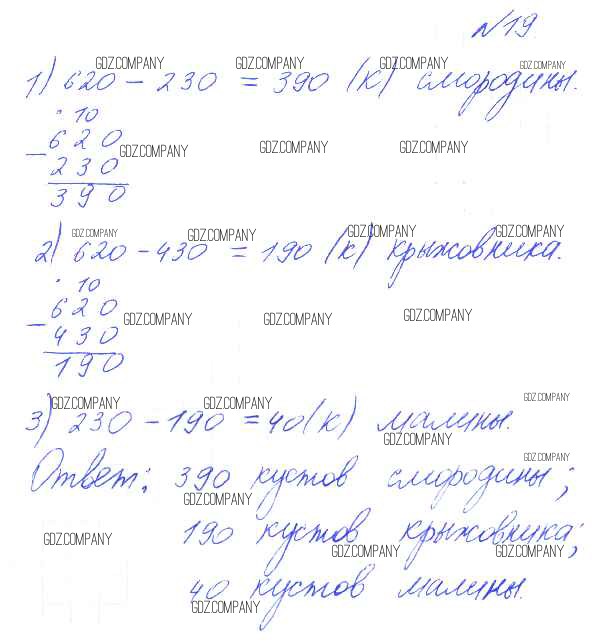 №19
GDZ.COMPANY GDZ.COMPANY GDZ.COMPANY GDZ.COMPANY
1) 620 - 230 = 390 (к) смородины.
· 10
620
GDZ.COMPANY GDZ.COMPANY GDZ.COMPANY
- 230
390
GDZ.COMPANY GDZ.COMPANY GDZ.COMPANY GDZ.COMPANY
2) 620 - 430 = 190 (к) крыжовника.
· 10
620
GDZ.COMPANY GDZ.COMPANY GDZ.COMPANY
- 430
190
GDZ.COMPANY GDZ.COMPANY GDZ.COMPANY
3) 230 - 190 = 40 (к) малины.
GDZ.COMPANY
GDZ.COMPANY
Ответ: 390 кустов смородины;
GDZ.COMPANY
190 кустов крыжовника;
GDZ.COMPANY GDZ.COMPANY GDZ.COMPANY
40 кустов малины.
GDZ.COMPANY